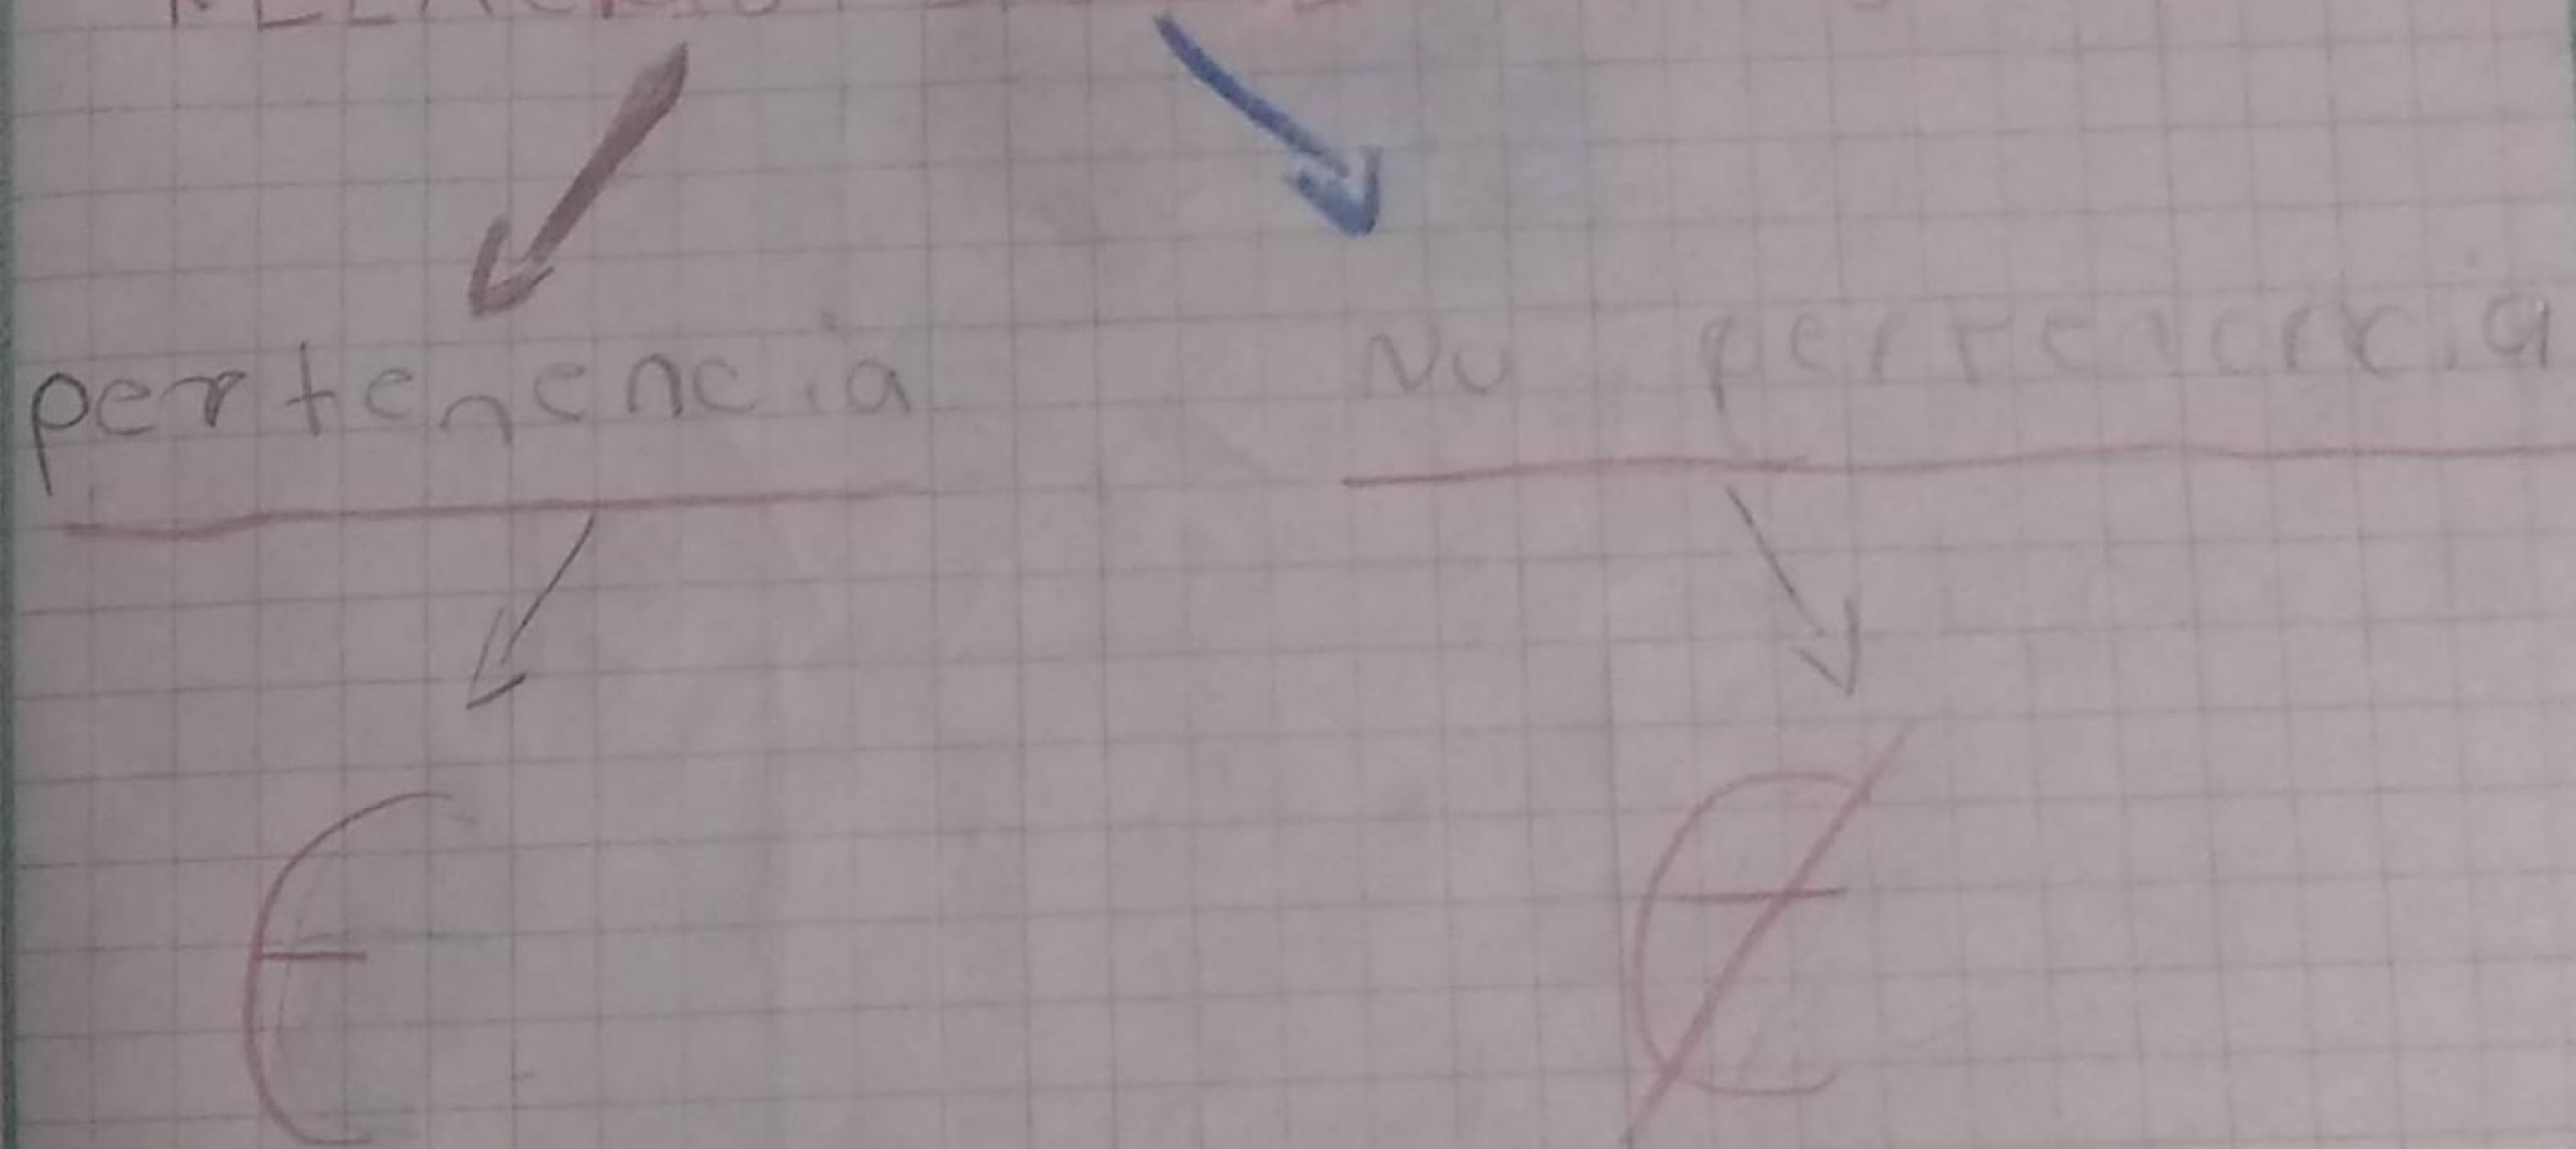 pertenencia No pertenencia
∈ ∉